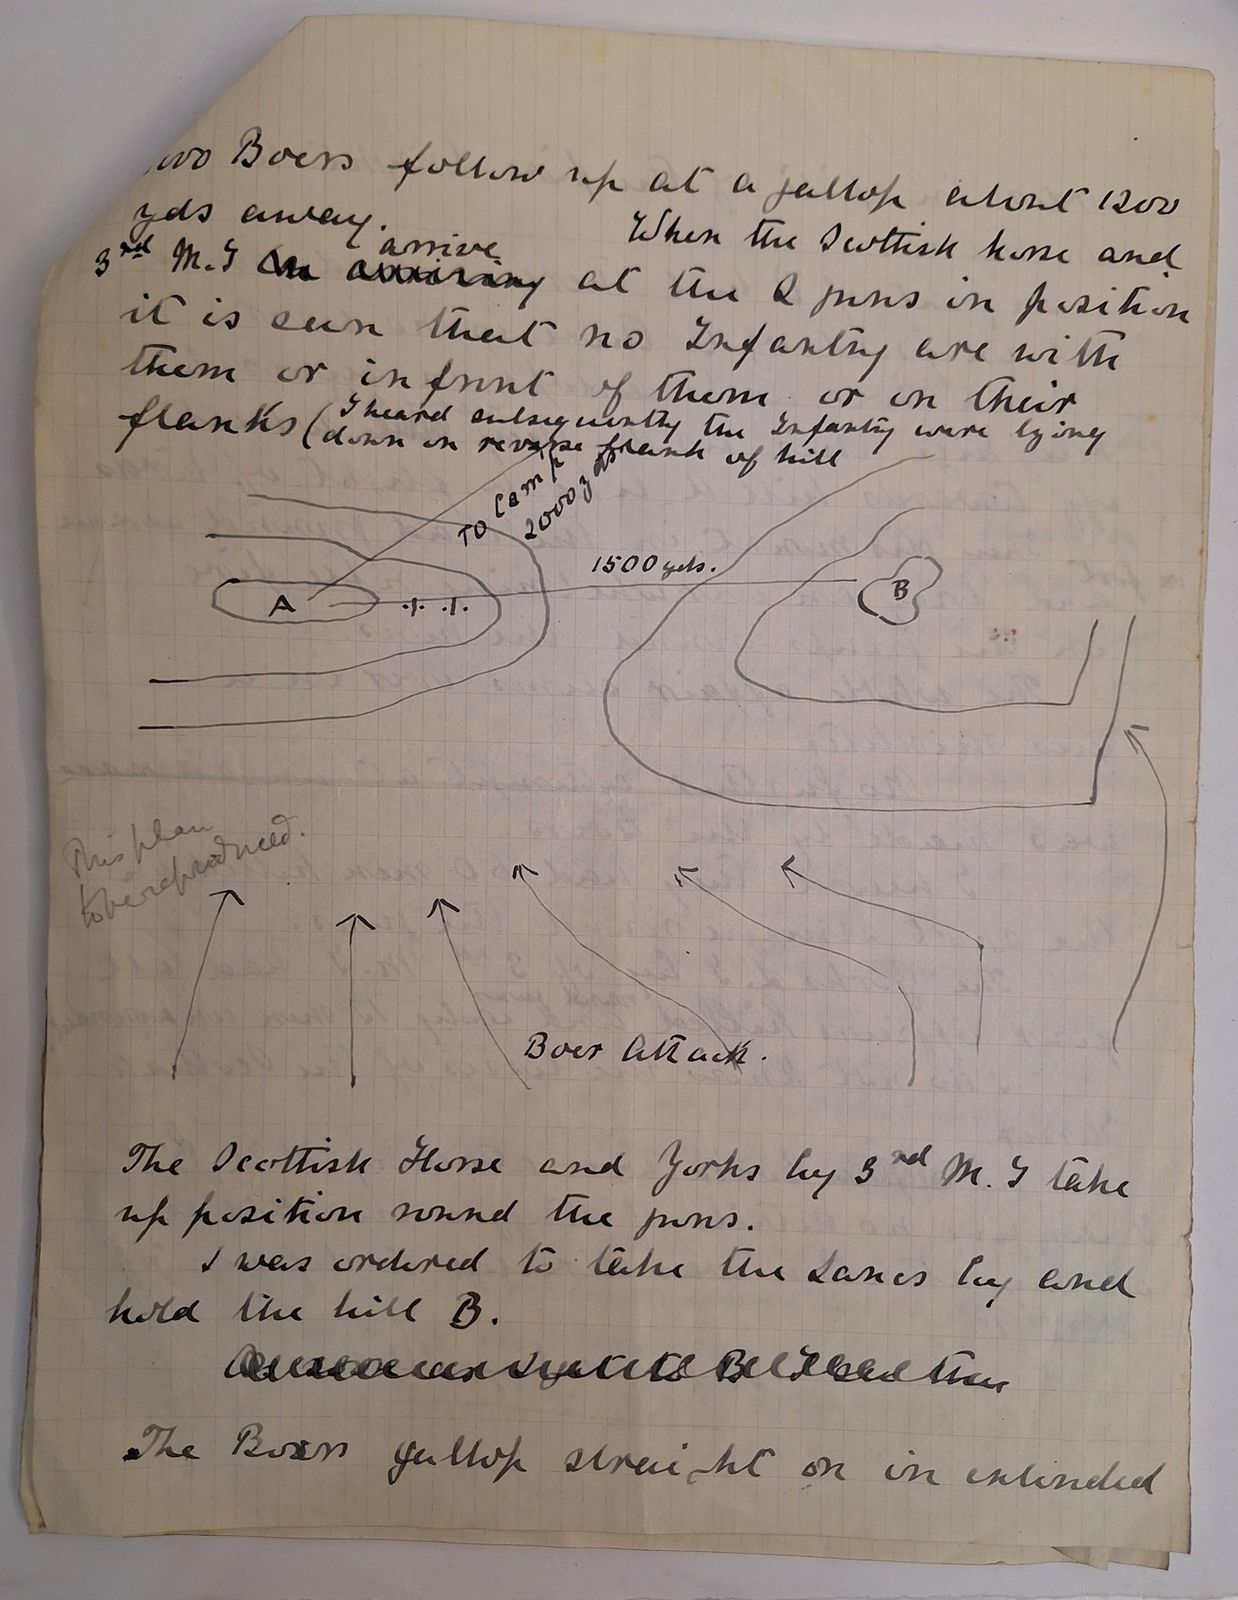 000 Boers follow up at a gallop about 1200
yds away. When the Scottish horse and
3rd M.I arrive at the 2 guns in position
it is seen that no Infantry are with
them or in front of them or on their
flanks (I heard subsequently the Infantry were lying
down on reverse flank of hill
To Camp
2000 yds
1500 yds.
A
B
This plan
to be reproduced.
Boer Attack.
The Scottish Horse and Yorks by 3rd M. I take
up position round the guns.
I was ordered to take the Lancs by and
hold the hill B.
The Boers gallop straight on in extended